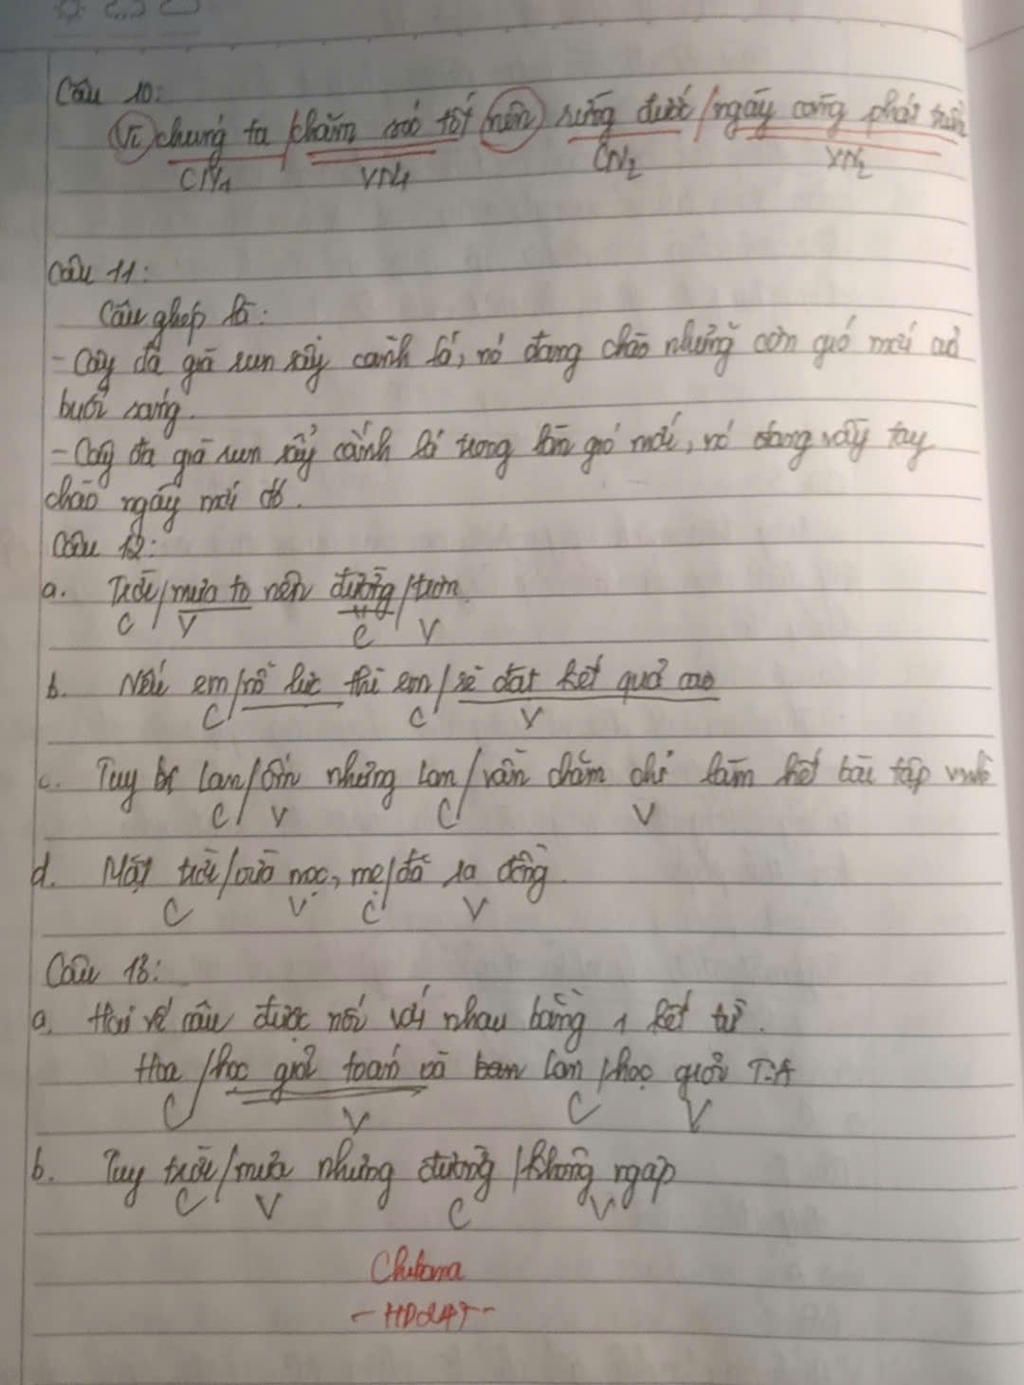 Câu 10:
Vì chúng ta / chăm sóc tốt nên rừng đước / ngày càng phát triển
CN1 VN1 CN2 VN2
Câu 11:
Câu ghép là:
- Cây đa già run rẩy cành lá, nó đang chào những cơn gió mới
buổi sáng.
- Cây đa già run rẩy cành lá trong làn gió mới, nó đang vẫy tay
chào ngày mới đó.
Câu 12:
a. Trời / mưa to nên đường / trơn
C V C V
b. Nếu em / nỗ lực thì em / sẽ đạt kết quả cao
C C V
c. Tuy Lan / ốm nhưng Lan / vẫn chăm chỉ làm hết bài tập
C V C V
d. Mặt trời / vừa mọc, mẹ / đã ra đồng.
C V C V
Câu 13:
a. Hai vế câu được nối với nhau bằng 1 kết từ.
Hoa / học giỏi toán và Lan / học giỏi T.A
C V C V
b. Tuy trời / mưa nhưng đường / không ngập
C V C V